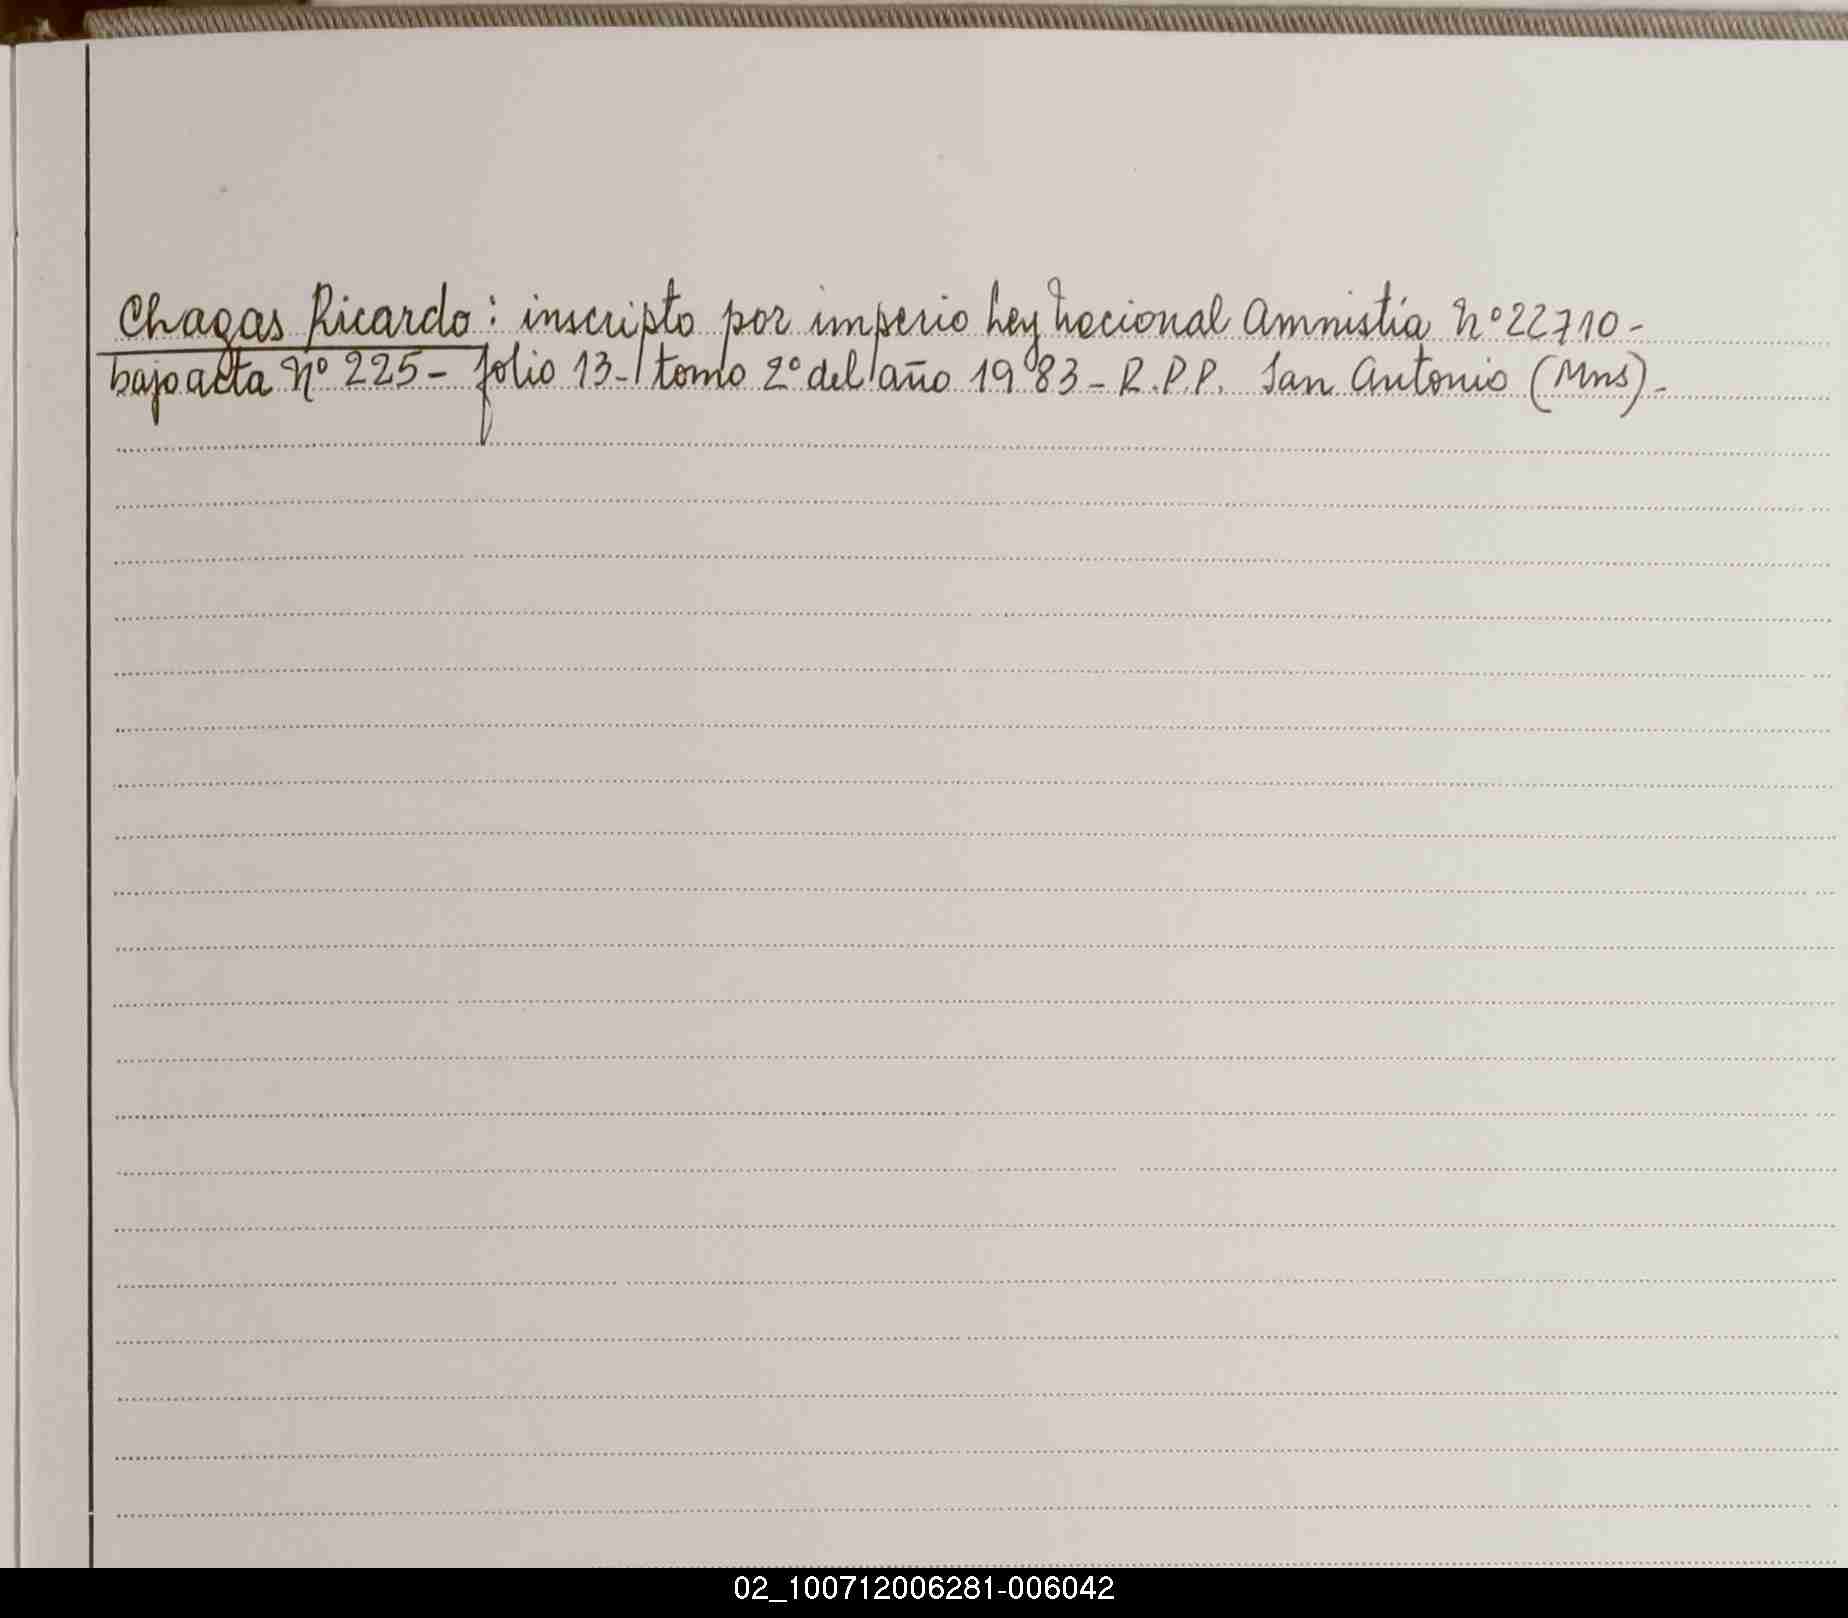 Chagas Ricardo: inscripto por imperio Ley Nacional Amnistía Nº 22710-
bajo acta Nº 225- folio 13- tomo 2º del año 1983- R.P.P. San Antonio (Mns)-
02_100712006281-006042